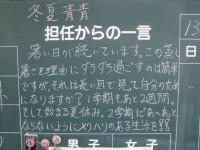 冬夏青青
担任からの一言
13
日
暑い日が続いています。この蒸し
暑さを理由にダラダラ過ごすのは簡単
ですが、それは長い目で見て自分のために
になりますか？1学期もあと2週間。
そして始まる夏休み。2学期に「あ〜あ」と
ならないようにメリハリのある生活を
男子
女子